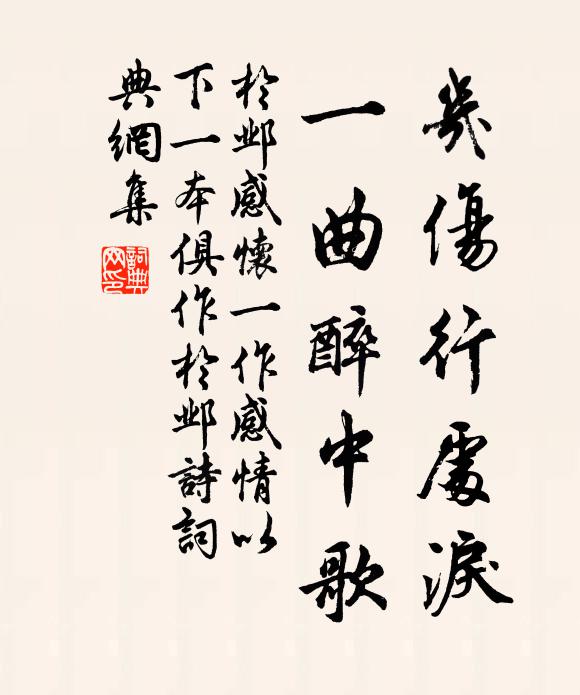 幾傷行處淚
一曲醉中歌
於鄴感懷一作感情以
下一本俱作於鄴詩詞
典網集
詞典
網印